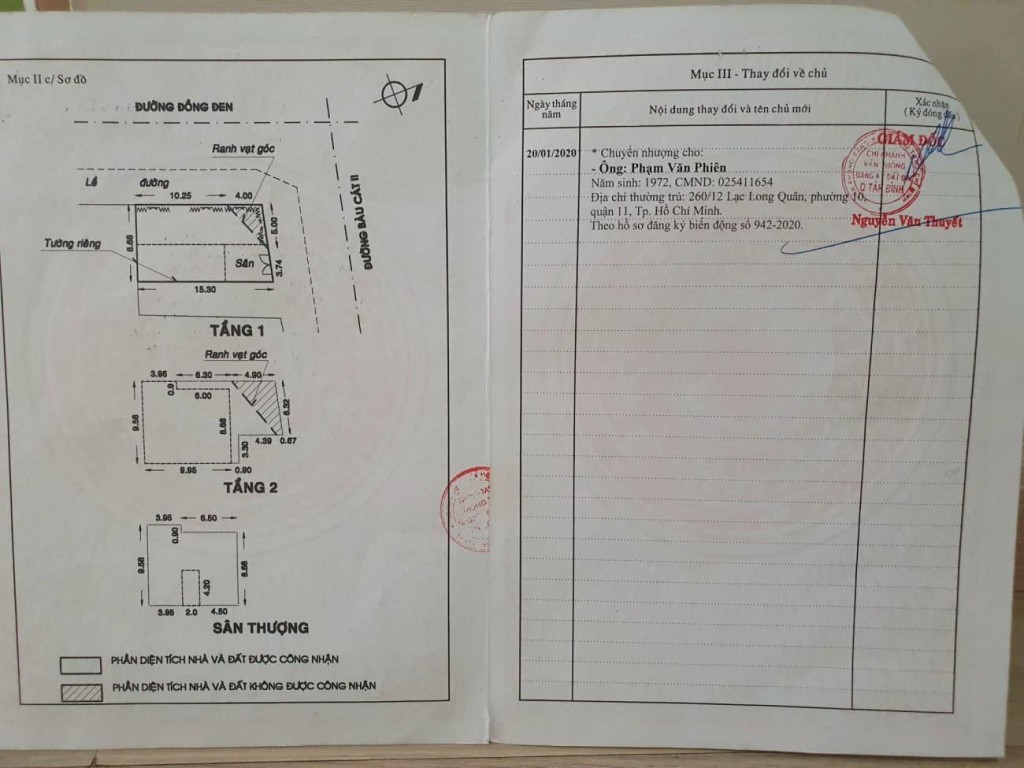 Mục II c/ Sơ đồ
ĐƯỜNG ĐỒNG ĐEN
Ranh vạt góc
Lề đường
10.25 4.00
ĐƯỜNG BÀU CÁT II
8.68
5.00
Tường riêng
Sân
3.74
15.30
TẦNG 1
Ranh vạt góc
3.95 6.30 4.90
0.9
6.00
9.58
8.68
6.32
4.39 0.67
3.30
9.95 0.90
TẦNG 2
3.95 6.50
0.90
9.58
8.68
4.20
3.95 2.0 4.50
SÂN THƯỢNG
PHẦN DIỆN TÍCH NHÀ VÀ ĐẤT ĐƯỢC CÔNG NHẬN
PHẦN DIỆN TÍCH NHÀ VÀ ĐẤT KHÔNG ĐƯỢC CÔNG NHẬN
Mục III - Thay đổi về chủ
Ngày tháng năm
Nội dung thay đổi và tên chủ mới
Xác nhận
(Ký đóng dấu)
20/01/2020
* Chuyển nhượng cho:
- Ông: Phạm Văn Phiên
Năm sinh: 1972, CMND: 025411654
Địa chỉ thường trú: 260/12 Lạc Long Quân, phường 10,
quận 11, Tp. Hồ Chí Minh.
Theo hồ sơ đăng ký biến động số 942-2020.
GIÁM ĐỐC
CHI NHÁNH
VĂN PHÒNG
ĐĂNG KÝ ĐẤT ĐAI
Q.TÂN BÌNH
Nguyễn Văn Thuyết